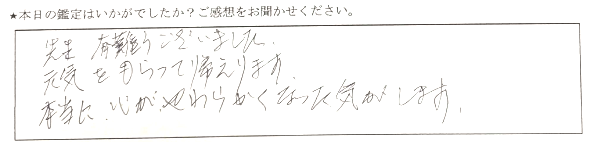 ★本日の鑑定はいかがでしたか？ご感想をお聞かせください。
先生 有難うございました.
元気をもらって帰えります.
本当に、心が、やわらかくなった気がします.